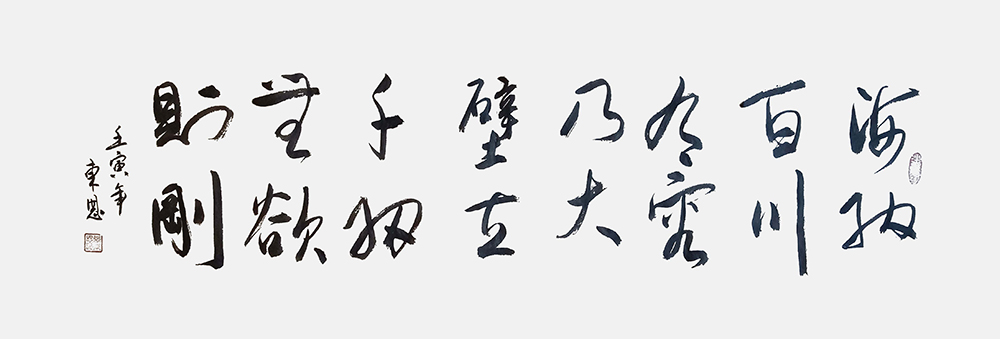 海納
百川
有容
乃大
壁立
千仞
無欲
則剛
壬寅年
東恩